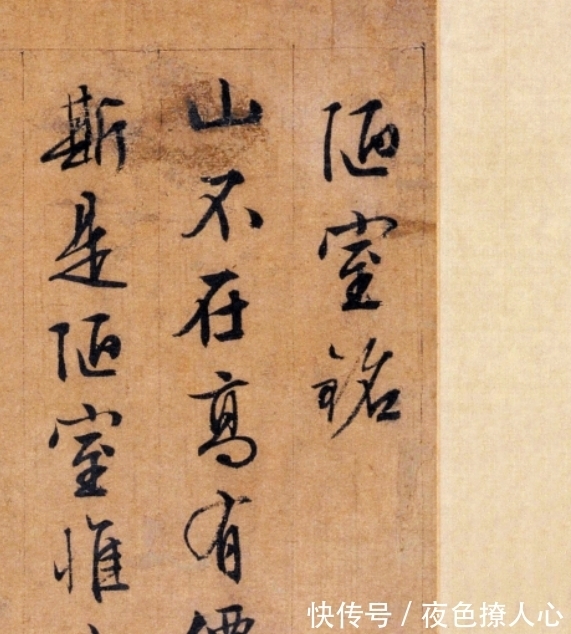 陋室銘
山不在高有僊
斯是陋室惟
快传号 / 夜色撩人心